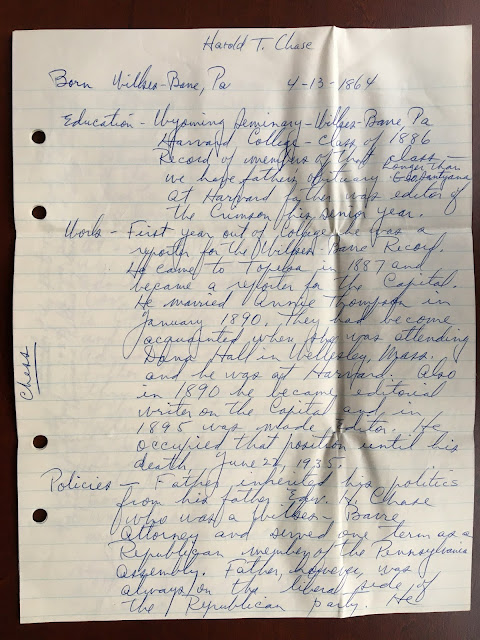 Harold T. Chase
Born Wilkes-Barre, Pa 4-13-1864
Education - Wyoming Seminary - Wilkes-Barre, Pa
Harvard College - Class of 1886
Record of members of that class
we hope father's obituary longer than
at Harvard father was editor of
the Crimson his senior year.
Work - First year out of College he was a
reporter for the Wilkes-Barre Record.
He came to Topeka in 1887 and
became a reporter for the Capital.
He married Annie Thompson in
January 1890. They had become
acquainted when she was attending
Dana Hall in Wellesley, Mass.
and he was at Harvard. Also
in 1890 he became editorial
writer on the Capital and in
1895 was made Editor. He
occupied that position until his
death, June 1935.
Policies - Father inherited his politics
from his father Edw. H. Chase
who was a Wilkes-Barre
Attorney and served one term as a
Republican member of the Pennsylvania
assembly. Father, however, was
always on the liberal side of
the Republican party. He
Chase